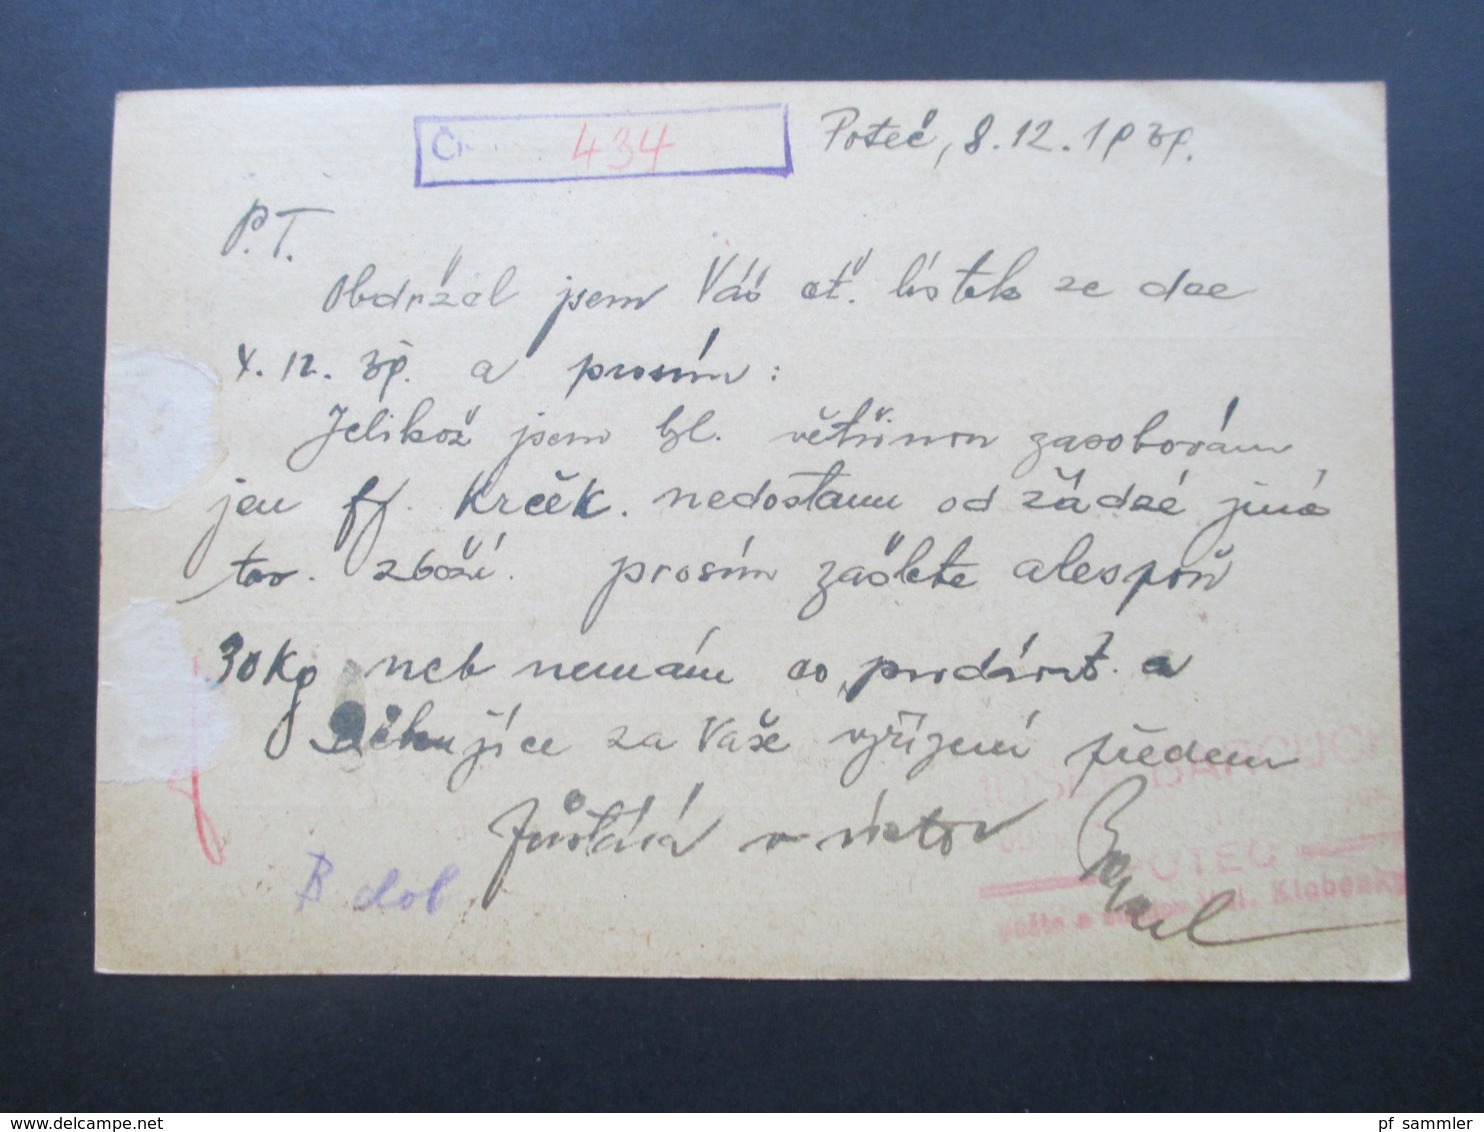 Č 434
Poteč, 8.12.1939.
P.T.
Obdržel jsem Váš ct. lístek ze dne
4.12.39. a prosím:
Jelikož jsem bl. většinou zasobován
jen ff. Krček. nedostanu od žádné jiné
tov. zboží. prosím zašlete alespoň
30 Kg neb nemám co prodávat. a
Děkujíce za Vaše vyřízení předem
Zůstává v úctou
JOSEF BAROUCH
POTEČ
pošta a Val. Klobouky
B dob
pf_sammler